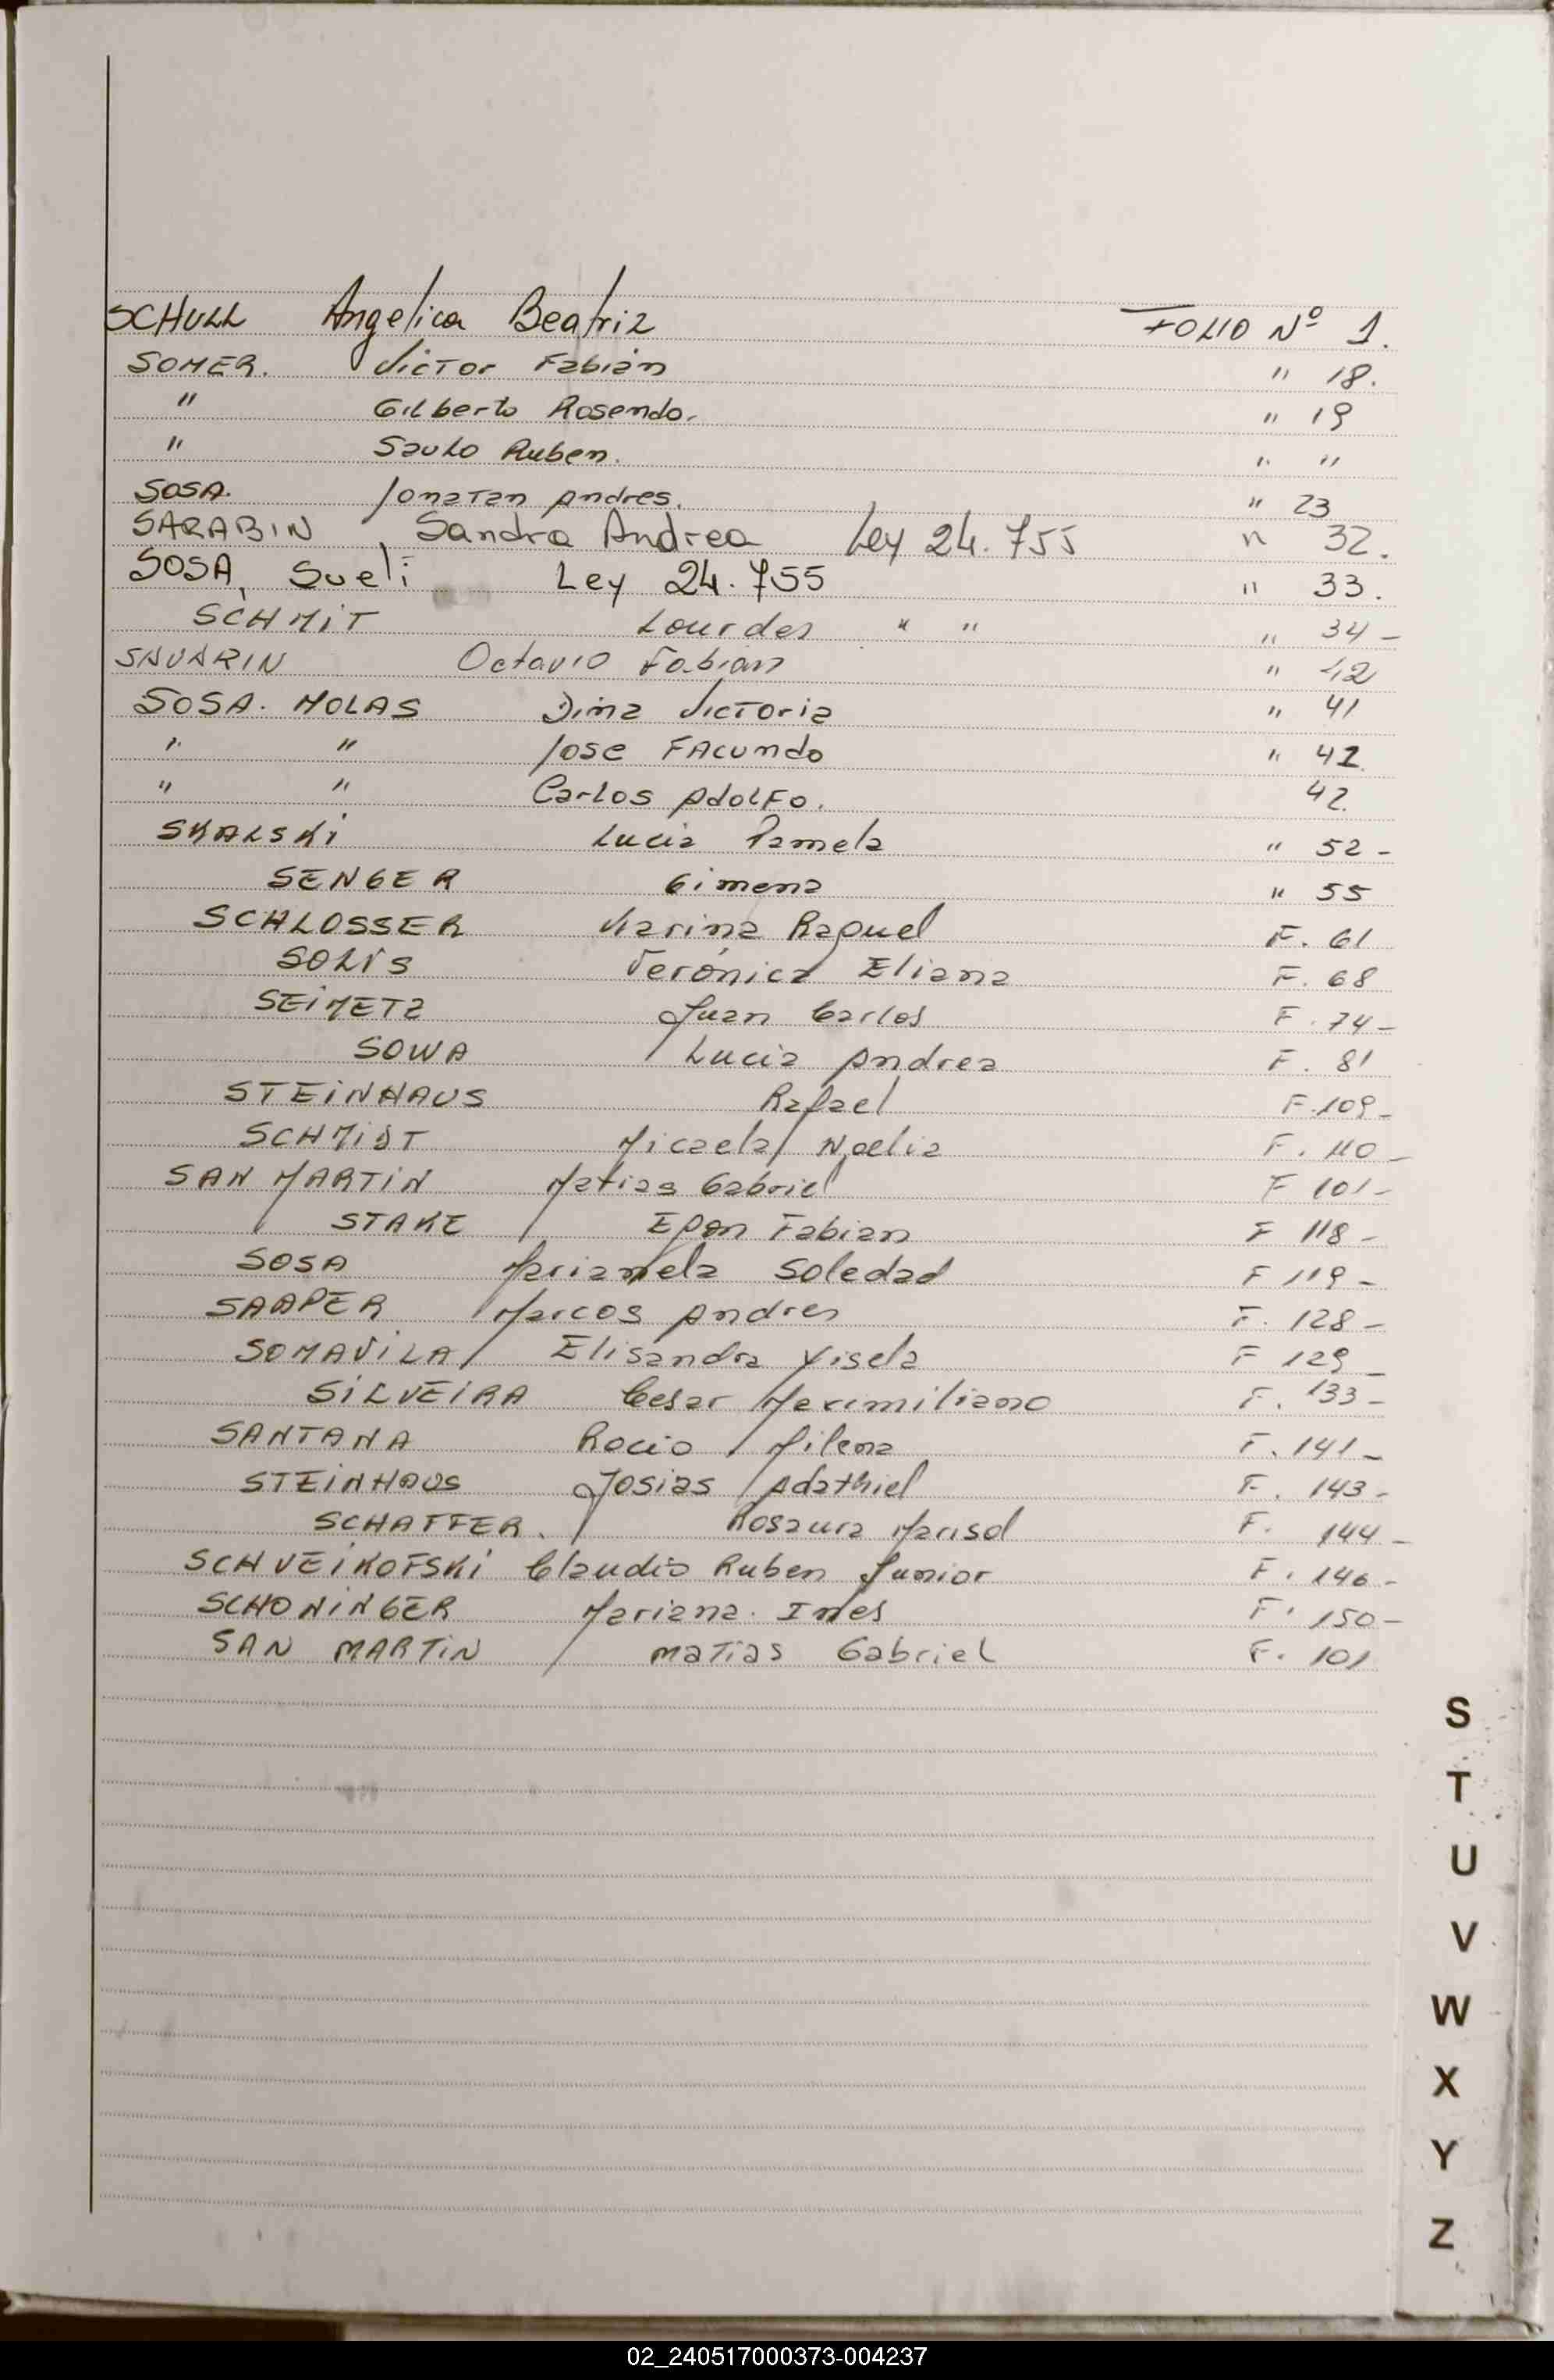 SCHULL Angelica Beatriz FOLIO Nº 1.
SOMER. Victor Fabian " 18.
" Gilberto Rosendo. " 19
" Saulo Ruben. " "
SOSA. Jonatan Andres. " 23
SARABIN Sandra Andrea Ley 24.755 " 32.
SOSA, Sueli Ley 24.755 " 33.
SCHMiT Lourdes " " " 34-
SAVARIN Octavio Fabian " 42
SOSA. MOLAS Dina Victoria " 41
" " Jose FAcundo " 42
" " Carlos AdoLFo. 42.
SKALSKi Lucia Pamela " 52-
SENGER Gimena " 55
SCHLOSSER Karina Raquel F. 61
SOLiS Verónica Eliana F. 68
SEiMETZ Juan Carlos F. 74-
SOWA Lucia Andrea F. 81
STEiNHAUS Rafael F. 109-
SCHMiDT Micaela Noelia F. 110-
SAN MARTiN Matias Gabriel F 101-
STAKE Egon Fabian F 118-
SOSA Marianela Soledad F 119-
SAAPER Marcos Andres F. 128-
SOMAViLA Elisandra Yisela F 129-
SiLVEiRA Cesar Maximiliano F. 133-
SANTANA Rocio Milena F. 141-
STEiNHAUS Josias Adathiel F. 143-
SCHAFFER. Rosaura Marisol F. 144-
SCHVEiKOFSKi Claudio Ruben Junior F. 146-
SCHONiNGER Mariana. Ines F. 150-
SAN MARTiN MaTias Gabriel F. 101
S
T
U
V
W
X
Y
Z
02_240517000373-004237